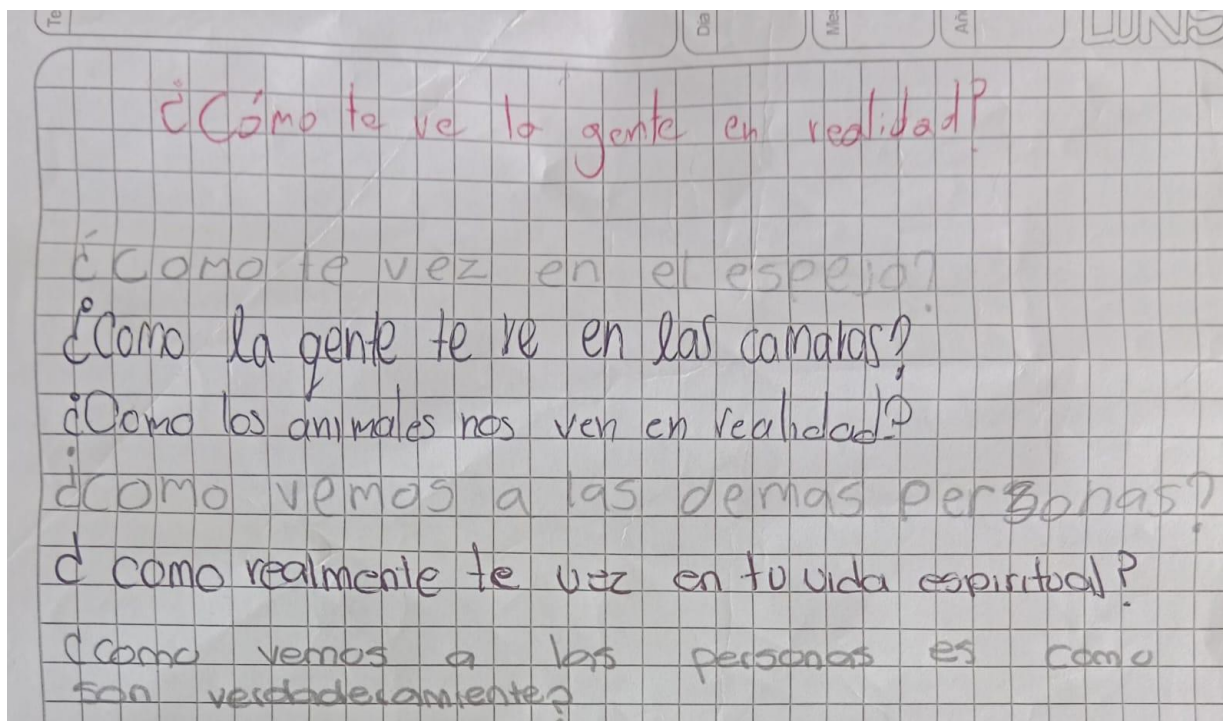 Te
Dia
Mes
Añ
¿Cómo te ve la gente en realidad?
¿como te vez en el espejo?
¿Como la gente te ve en las camaras?
¿Como los animales nos ven en realidad?
¿como vemos a las demas personas?
¿como realmente te vez en tu vida espiritual?
¿como vemos a las personas es como
son verdaderamiente?